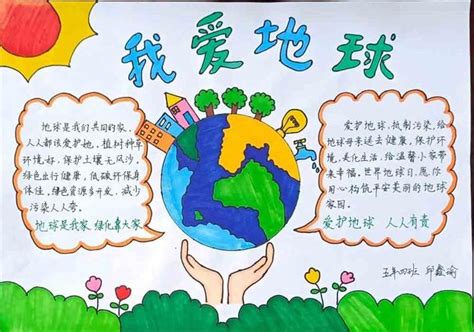 我爱地球
地球是我们共同的家,
人人都该爱护她,植树种草
环境好,保护土壤无风沙。
绿色出行健康,低碳环保身
体佳,绿色资源多开发,减少
污染人人夸。
地球是我家 绿化靠大家
爱护地球,抵制污染,给
地球母亲送去健康,保护环
境,美化生活,给温馨小家带
来幸福。世界地球日,愿你
用心构筑平安美丽的地球
家园。
爱护地球 人人有责
五年四班 邱鑫渝